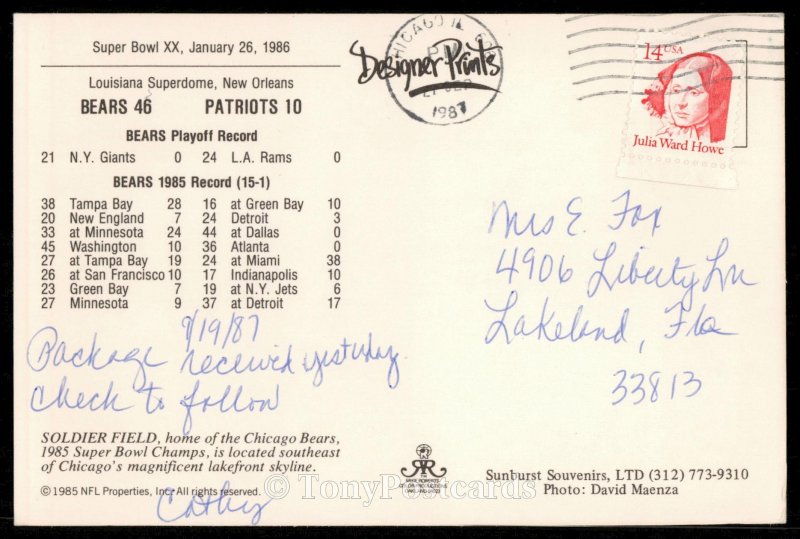 Super Bowl XX, January 26, 1986
Louisiana Superdome, New Orleans
BEARS 46 PATRIOTS 10
BEARS Playoff Record
21 N.Y. Giants 0 24 L.A. Rams 0
BEARS 1985 Record (15-1)
38 Tampa Bay 28 16 at Green Bay 10
20 New England 7 24 Detroit 3
33 at Minnesota 24 44 at Dallas 0
45 Washington 10 36 Atlanta 0
27 at Tampa Bay 19 24 at Miami 38
26 at San Francisco 10 17 Indianapolis 10
23 Green Bay 7 19 at N.Y. Jets 6
27 Minnesota 9 37 at Detroit 17
9/19/87
Package received yesterday.
Check to follow
SOLDIER FIELD, home of the Chicago Bears,
1985 Super Bowl Champs, is located southeast
of Chicago's magnificent lakefront skyline.
© 1985 NFL Properties, Inc. All rights reserved.
Cathy
CHICAGO IL
PM
1987
Designer Prints
14 USA
Julia Ward Howe
Mrs E. Fox
4906 Liberty Ln
Lakeland, Fla
33813
Sunburst Souvenirs, LTD (312) 773-9310
Photo: David Maenza
© TonyPostcards